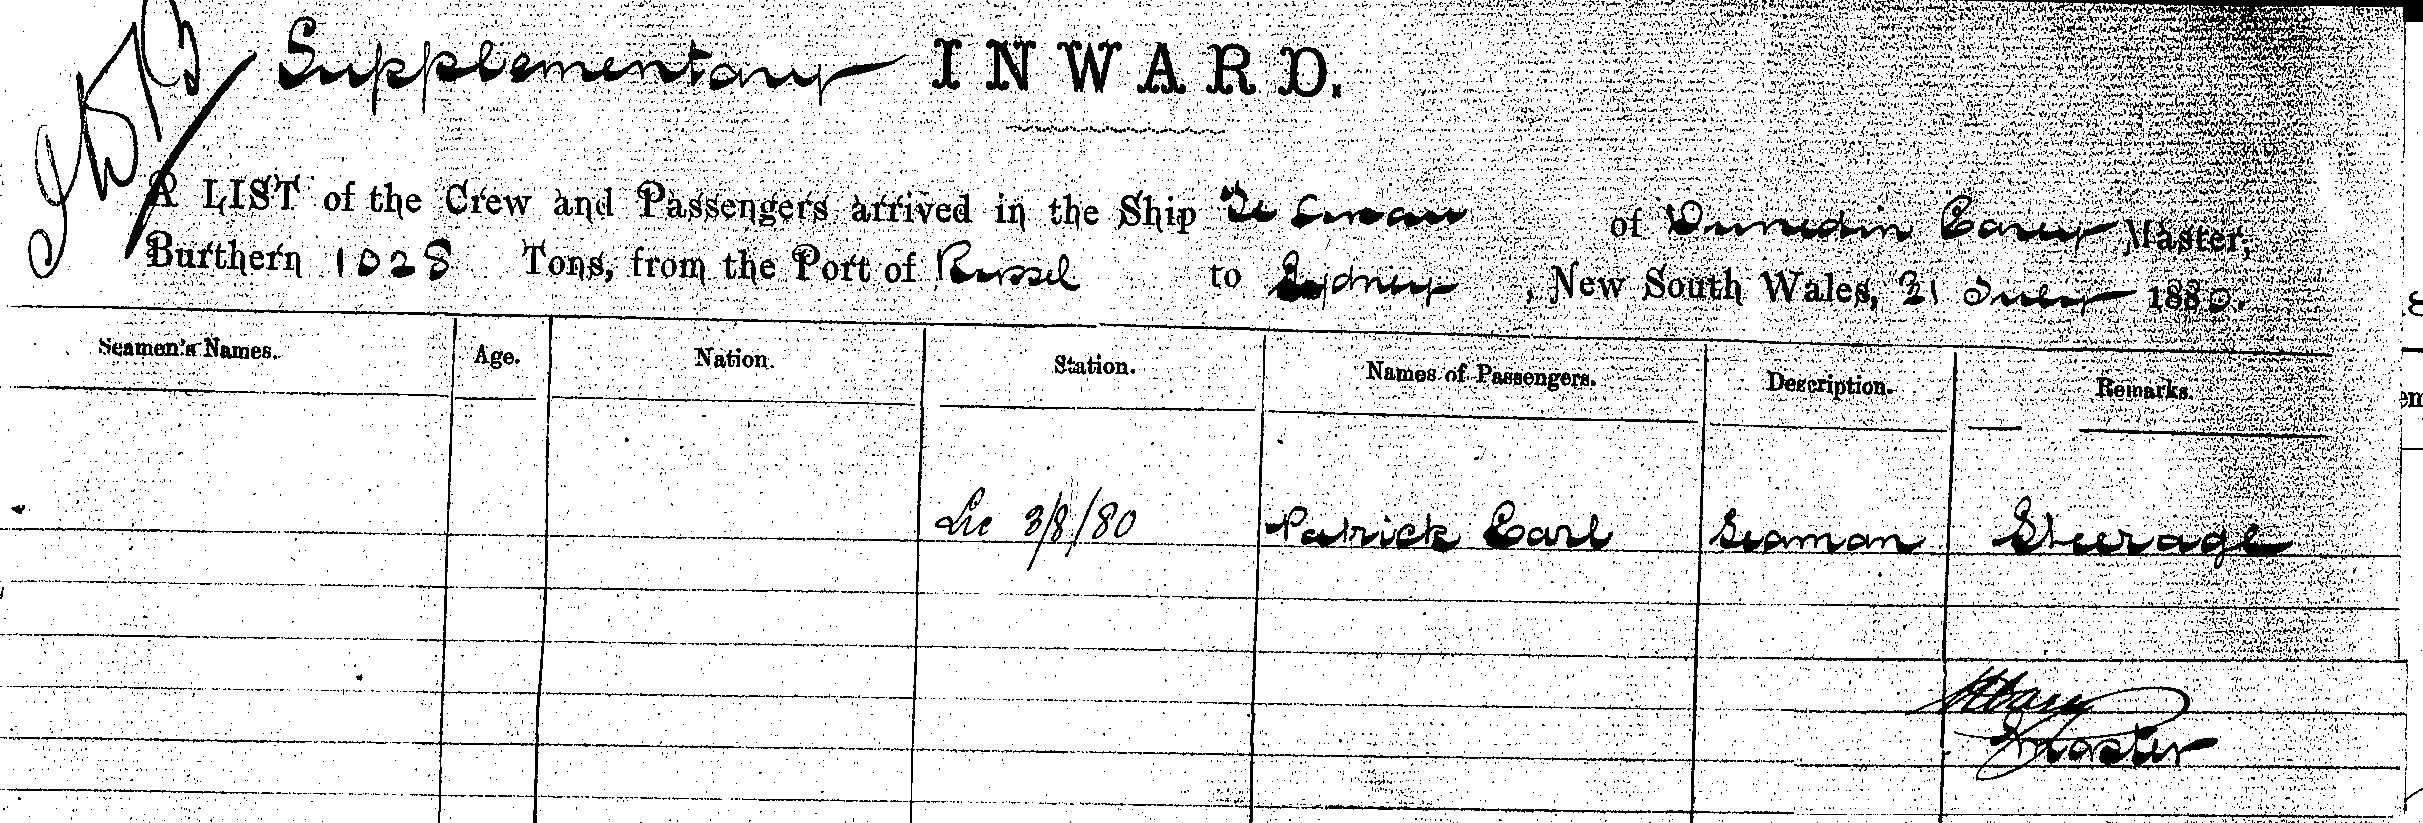 Supplementary INWARD.
A LIST of the Crew and Passengers arrived in the Ship Te Anau of Dunedin Carey Master,
Burthern 1028 Tons, from the Port of Russel to Sydney, New South Wales, 31 July 1880.
Seamen's Names. Age. Nation. Station. Names of Passengers. Description. Remarks.
3/8/80 Patrick Earl Seaman Steerage
Carey
Master